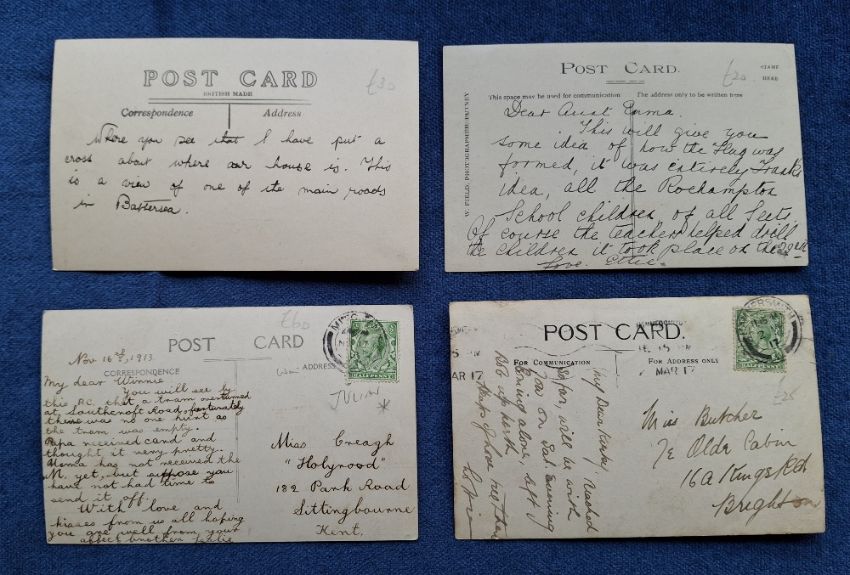 POST CARD
BRITISH MADE
Correspondence
Address
£30
Where you see that I have put a
cross about where our house is. This
is a view of one of the main roads
in Battersea.
POST CARD.
£20
This space may be used for communication
The address only to be written here
W. FIELD, PHOTOGRAPHER PUTNEY
Dear Aunt Emma.
This will give you
some idea of how the Flag was
formed, it was entirely Frank's
idea, all the Roehampton
School children, of all Sects.
Of course the teachers helped drill
the children it took place on the
Love. Ettie.
POST CARD
CORRESPONDENCE
ADDRESS
£60
Nov 16th, 1913.
My dear Winnie
You will see by
this P.C. that a tram overturned
at Southcroft Road, fortunately
there was no one hurt as
the tram was empty.
Papa received card and
thought it very pretty.
Mama has not received the
M. yet, but suppose you
have not had time to
send it off.
With love and
kisses from us all hoping
you are well from your
affect brother Leslie
Miss Creagh
"Holyrood"
182 Park Road
Sittingbourne
Kent.
POST CARD.
FOR COMMUNICATION
FOR ADDRESS ONLY
MAR 17
£25
My Dear
will be with
you on Sat. evening
coming alone, left
Miss Butcher
Ye Olde Cabin
16A Kings Rd
Brighton